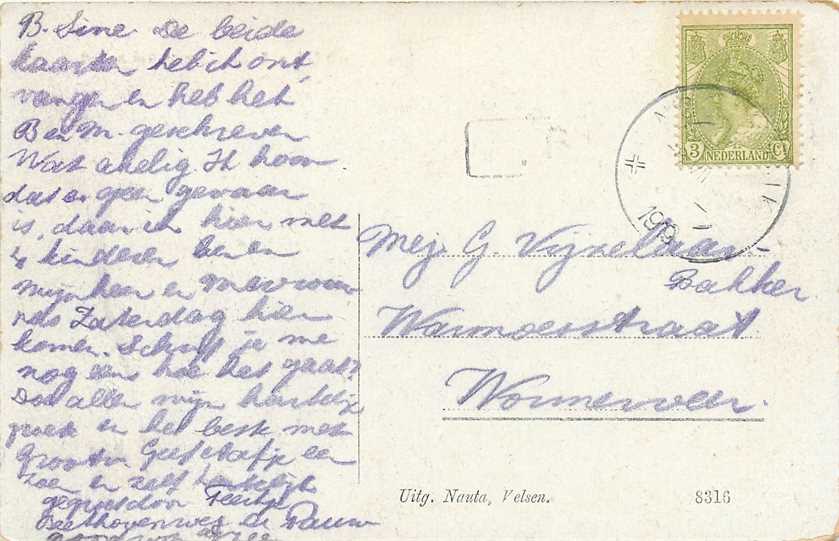 B. Sine De beide
kaarten heb ik ont
vangen en heb het
B en M. geschreven
Wat akelig. Ik hoor
dat er geen gevaar
is, daar ik hier met
4 kinderen ben en
mijnheer en mevrouw
Zaterdag hier
komen. Schrijf je me
nog eens hoe het gaat?
Doe allen mijn hartelijke
groeten en het beste met
Grootva een
zoen en zelf hartelijk
gegroet door
Beethovenweg de Pauw
3 CT NEDERLAND
Mej. G. Vijzelaar-
Bakker
Warmoesstraat
Wormerveer.
Uitg. Nauta, Velsen.
8316